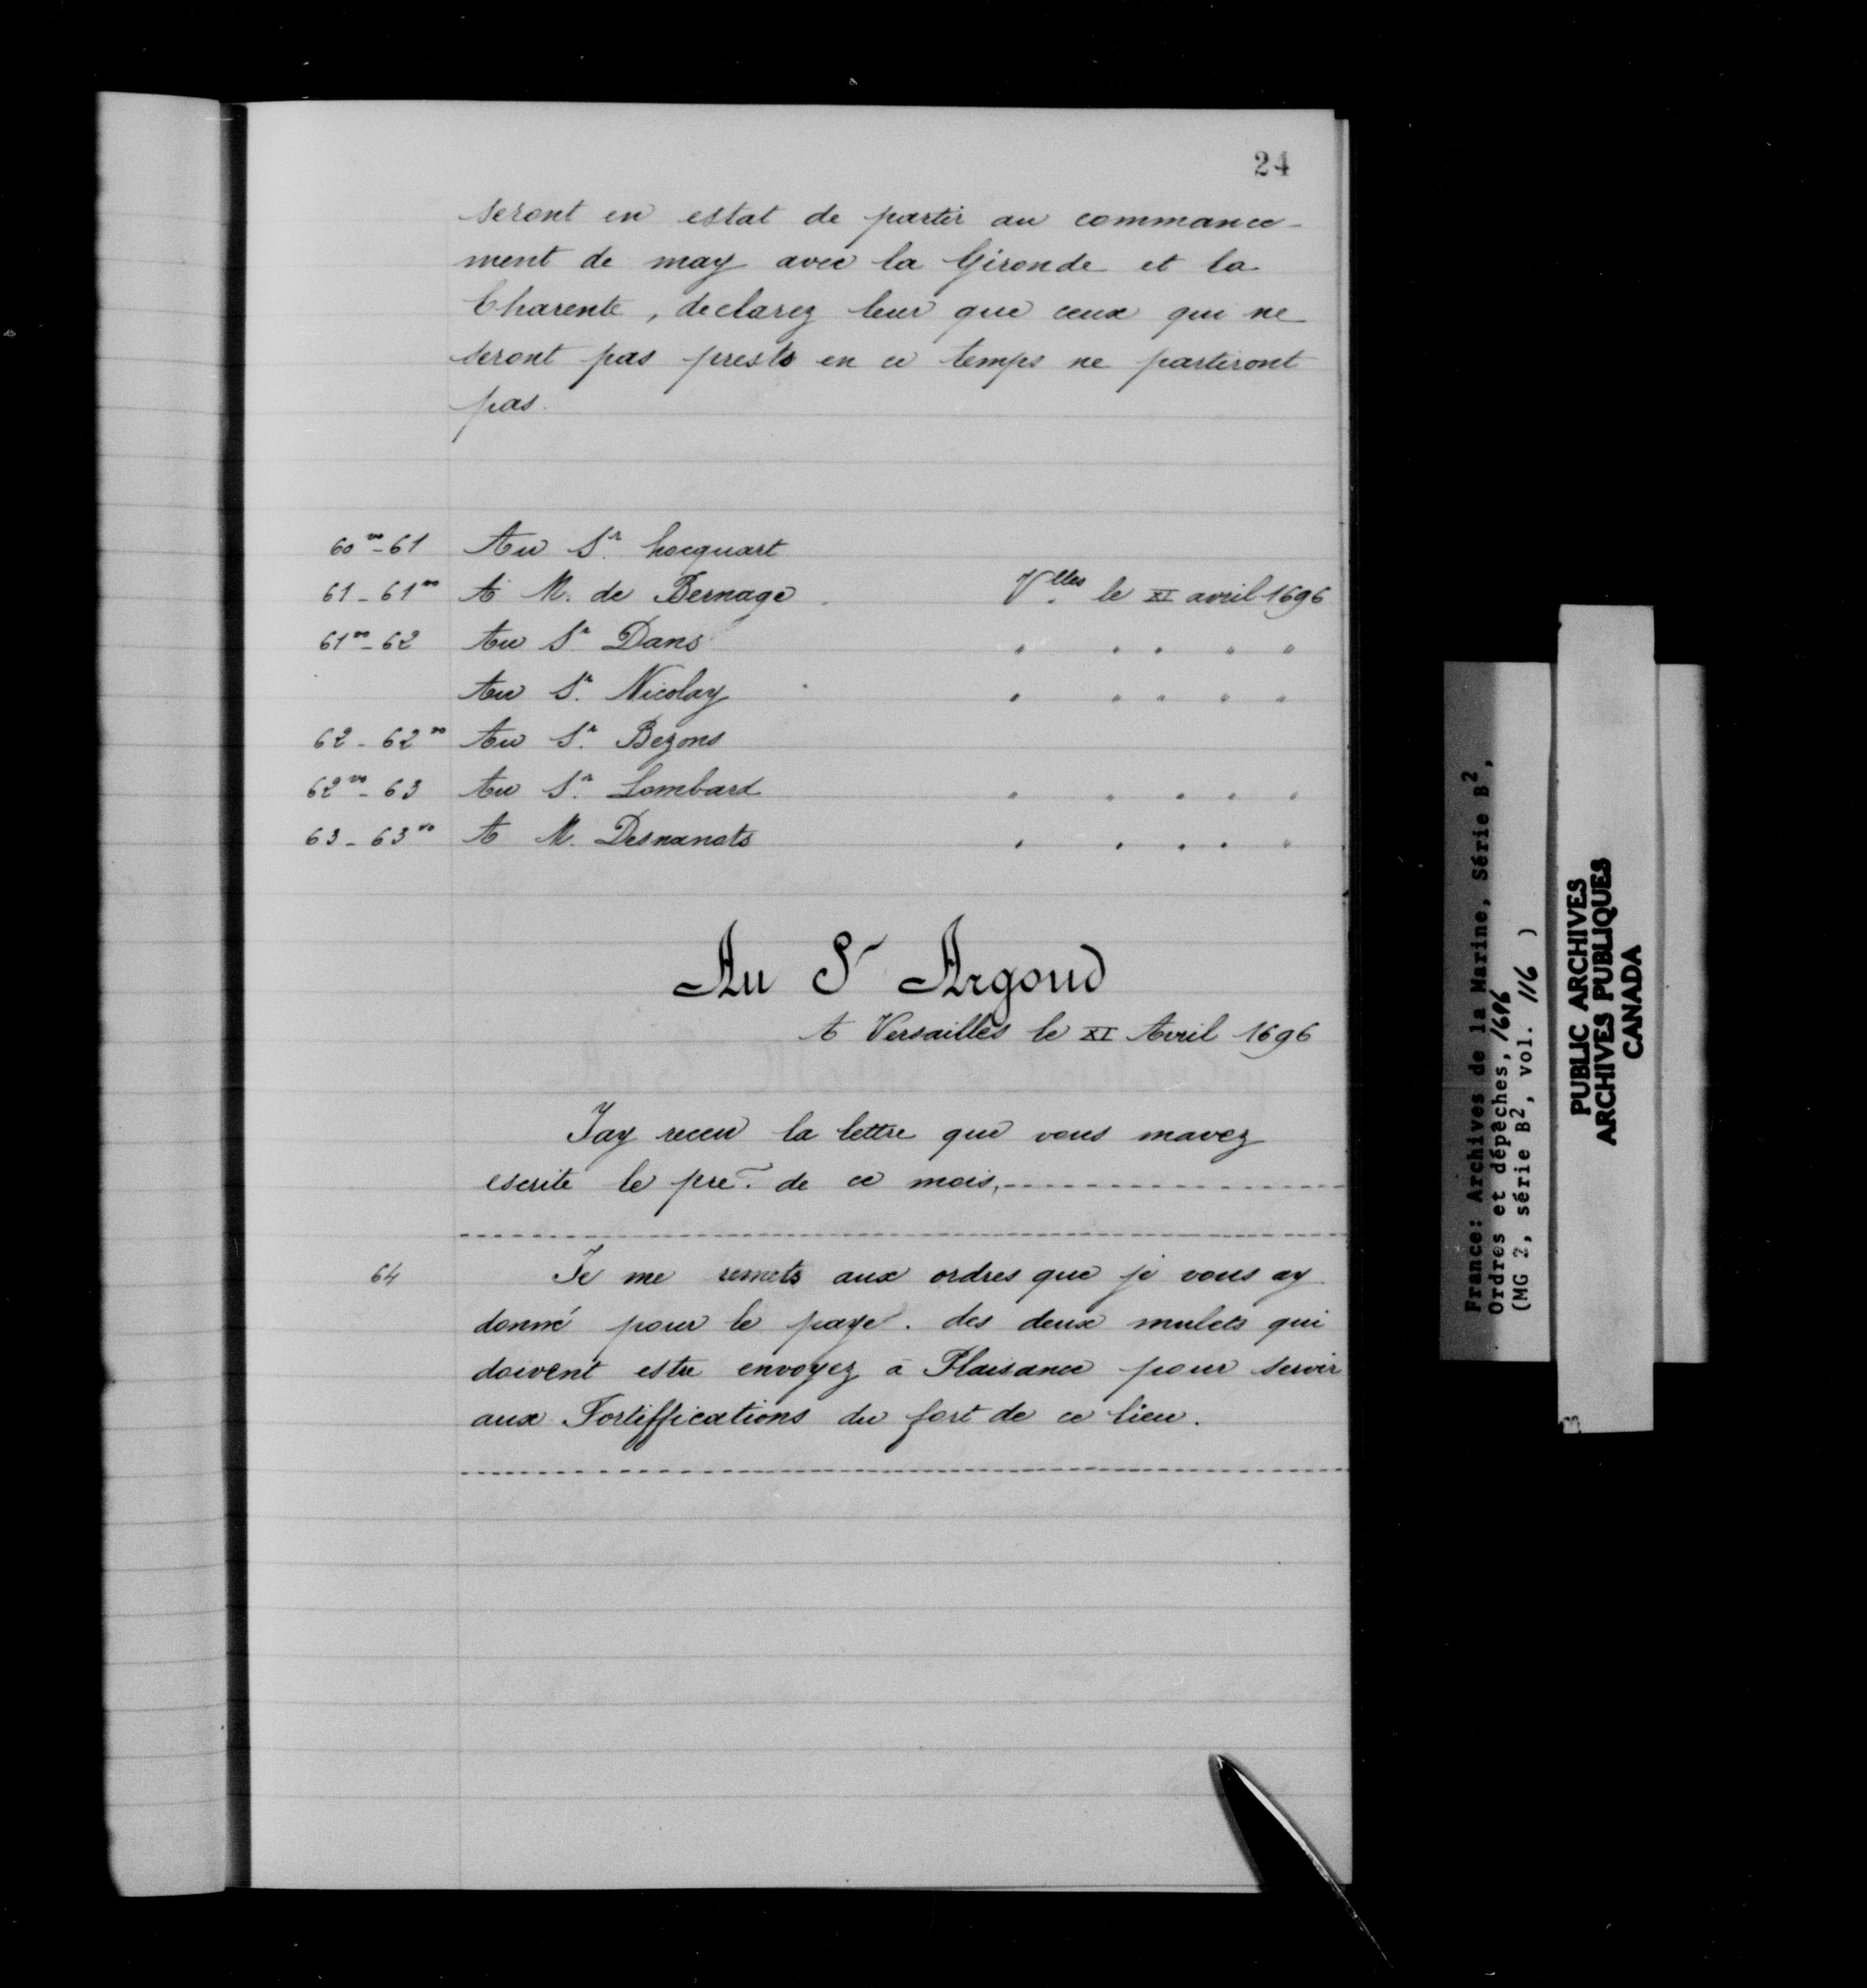 24
seront en estat de partir au commance-
ment de may avec la Gironde et la
Charente, declarez leur que ceux qui ne
seront pas prests en ce temps ne partiront
pas.
60vo-61 Au Sr. hocquart
61-61vo A M. de Bernage. Vlles le XI avril 1696
61vo-62 Au Sr. Dans " " " " "
Au Sr. Nicolay " " " " "
62-62vo Au Sr. Bezons
62vo-63 Au Sr. Lombard " " " " "
63-63vo A M. Desnanots " " " " "
Au Sr Argoud
A Versailles le XI Avril 1696
Jay receu la lettre que vous mavez
escrite le pre. de ce mois,
64 Je me remets aux ordres que je vous ay
donné pour le paye. des deux mulets qui
doivent estre envoyez a Plaisance pour servir
aux Fortiffications du fort de ce lieu.
France: Archives de la Marine, Série B2,
Ordres et dépêches, 1696
(MG 2, série B2, vol. 116 )
PUBLIC ARCHIVES
ARCHIVES PUBLIQUES
CANADA